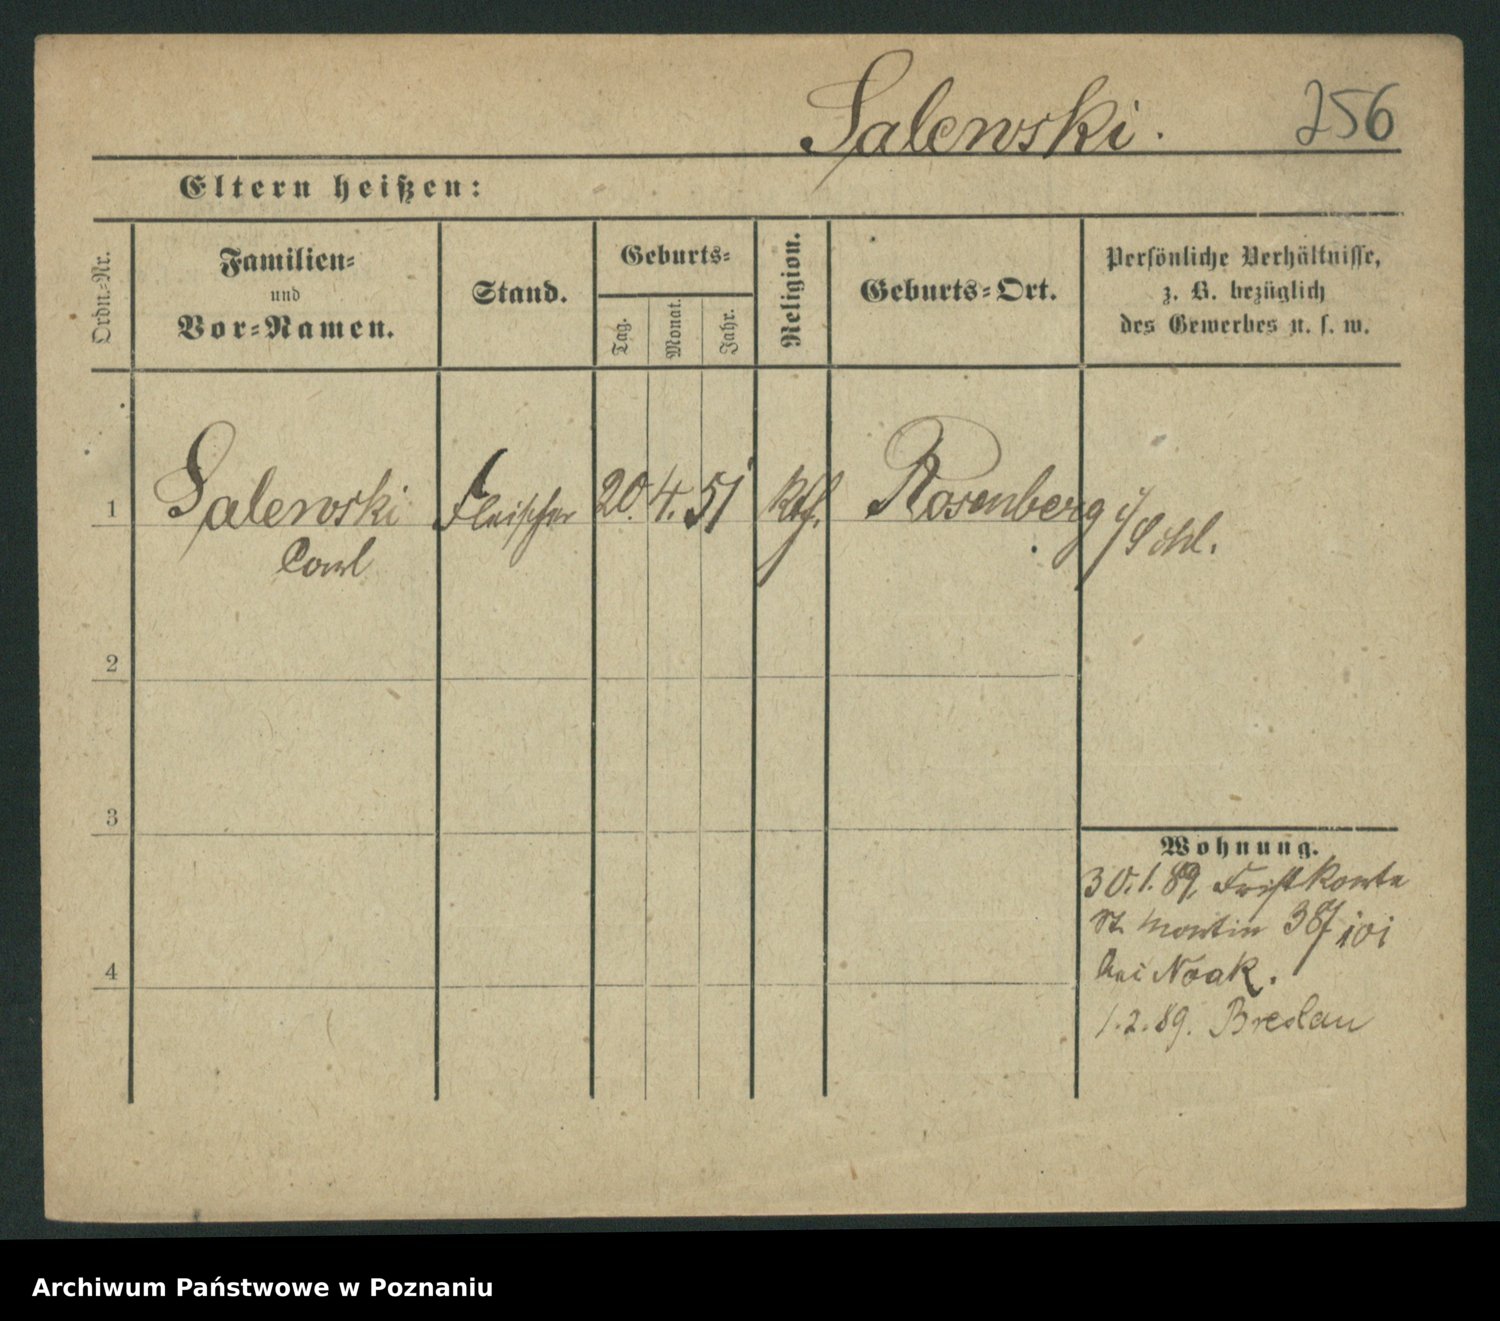 Salewski. 256
Eltern heißen:
Ordn.-Nr.
Familien-
und
Vor-Namen.
Stand.
Geburts-
Tag.
Monat.
Jahr.
Religion.
Geburts-Ort.
Persönliche Verhältnisse,
z. B. bezüglich
des Gewerbes u. s. w.
1 Salewski Fleischer 20. 4. 51 Kth. Rosenberg i/Schl.
Carl
2
3
4
Wohnung.
30.1.89.
St. Martin 38/
bei Noak.
1.2.89. Breslau
Archiwum Państwowe w Poznaniu